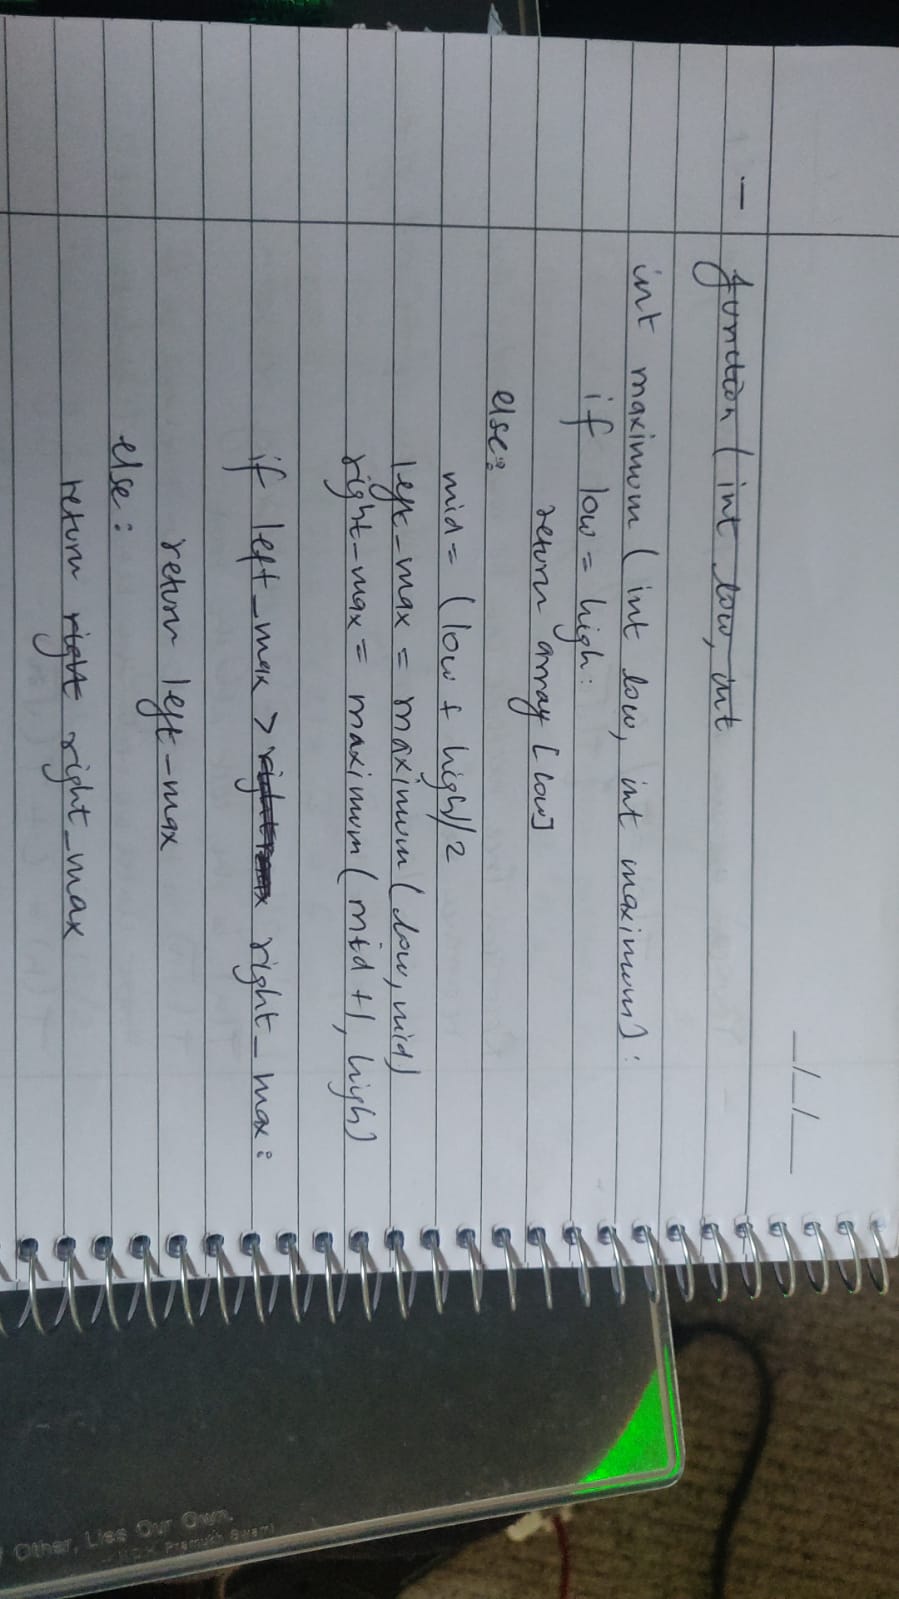 __/__/__
- function (int low, int
int maximum (int low, int maximum):
if low = high:
return array [low]
else:
mid = (low + high)//2
left_max = maximum (low, mid)
right_max = maximum (mid +1, high)
if left_max > right_max:
return left_max
else:
return right right_max
Other, Lies Our Own.